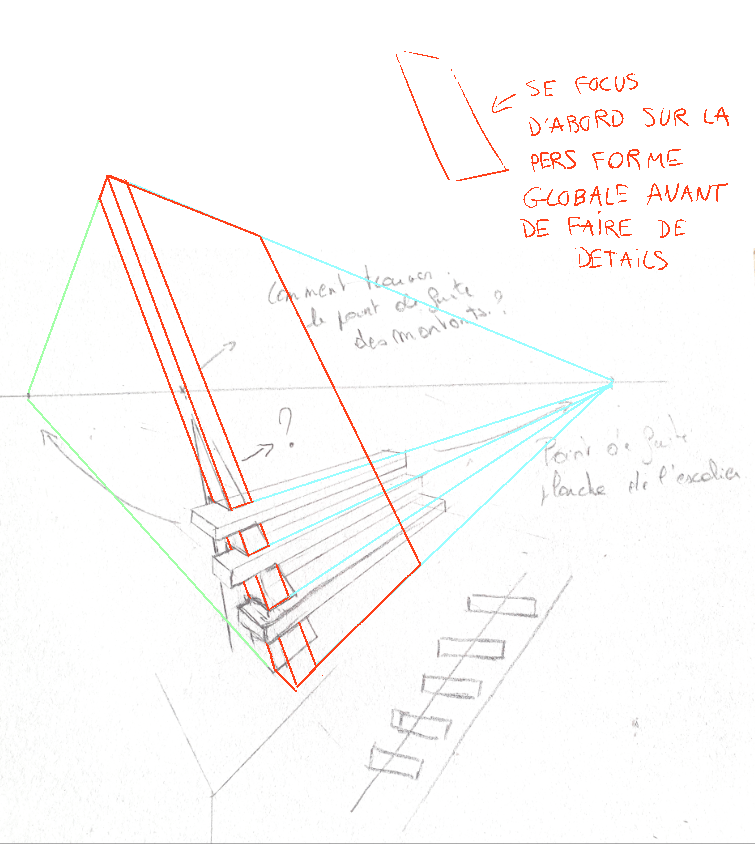 SE FOCUS
D'ABORD SUR LA
PERS FORME
GLOBALE AVANT
DE FAIRE DE
DETAILS
Comment trouver
le point de fuite
des montants ?
?
Point de fuite
planche de l'escalier